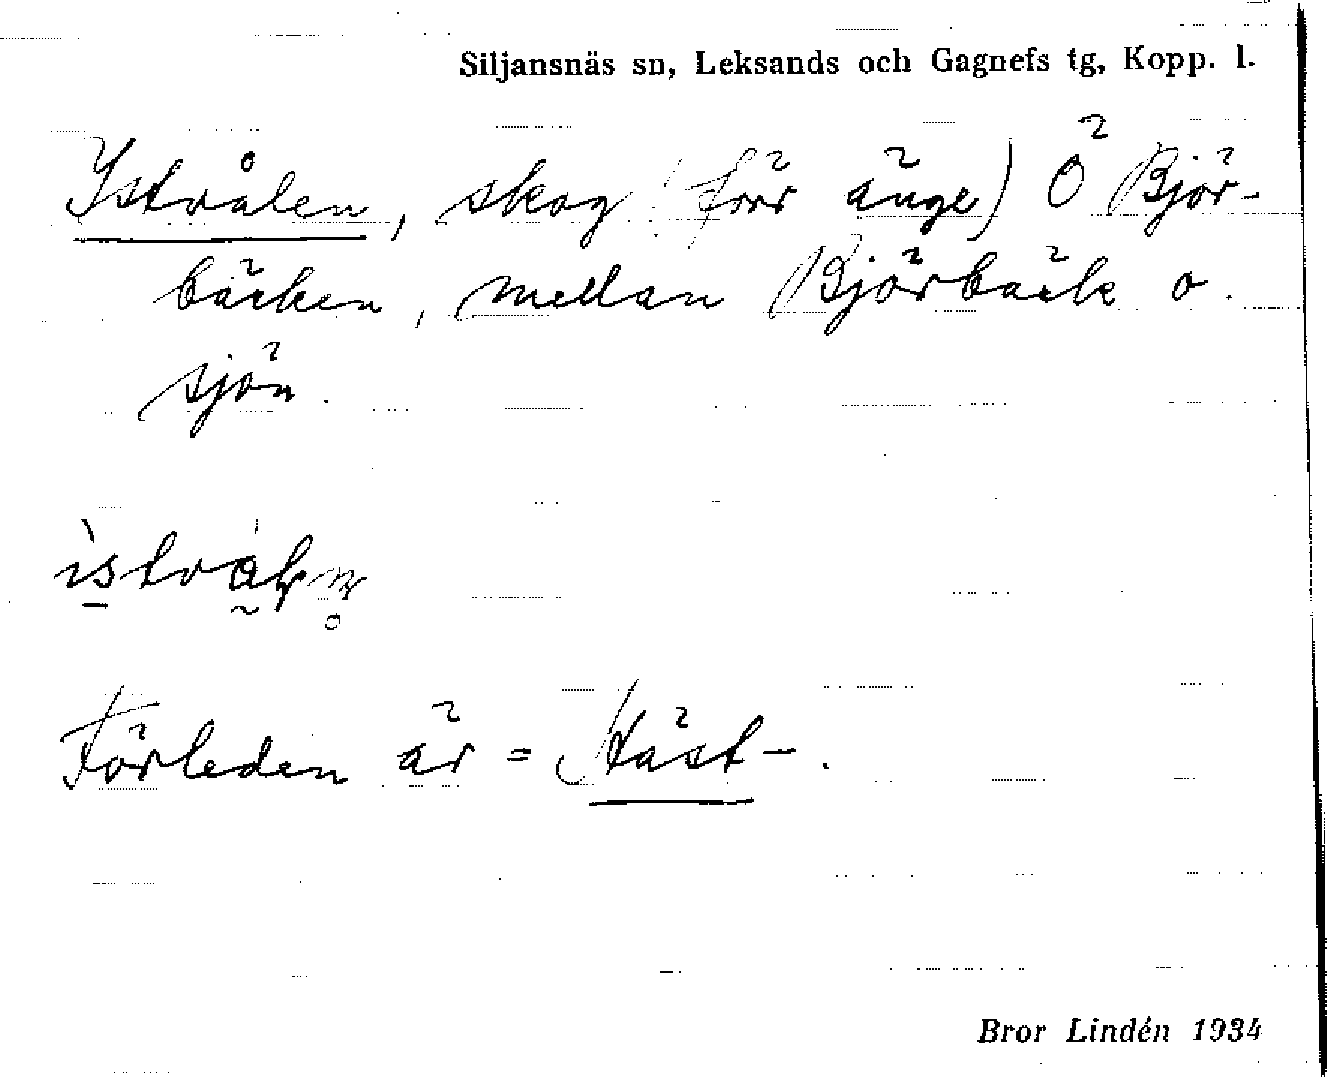 Siljansnäs sn, Leksands och Gagnefs tg, Kopp. l.
Ystvålen, skog (förr änge) Ö Björ-
bäcken, mellan Björbäck o.
sjön.
Förleden är = Häst-.
Bror Lindén 1934